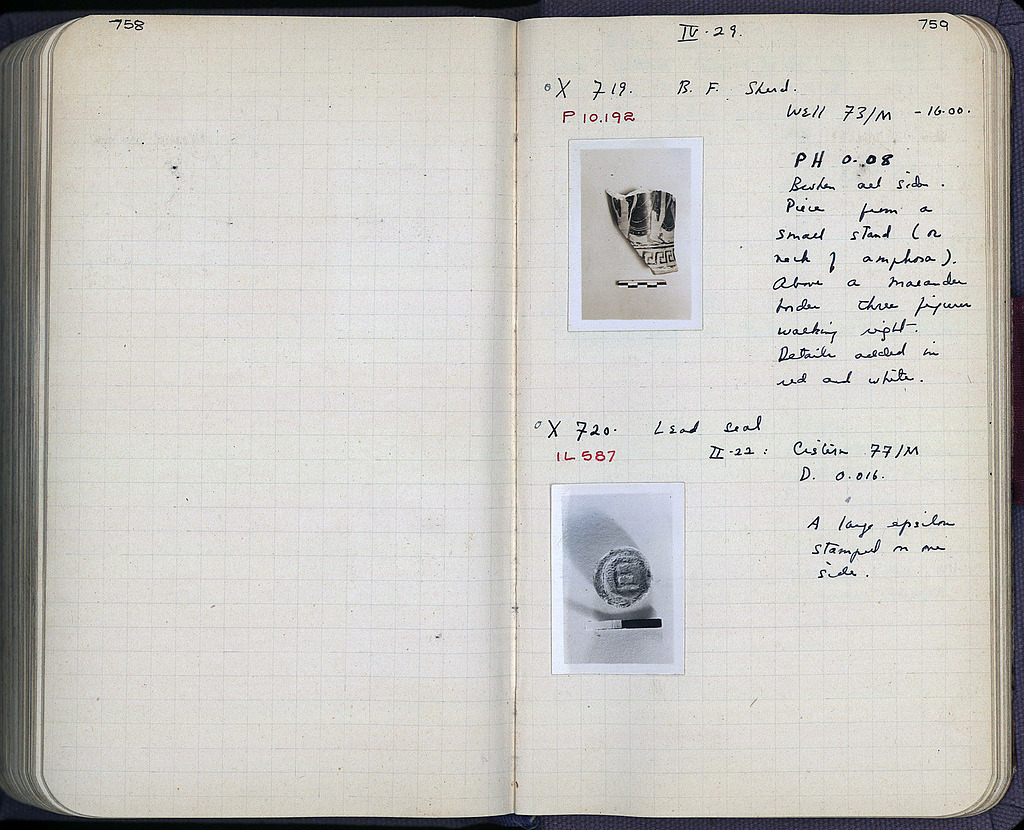 758
759
IV·29.
X 719. B. F. Sherd.
P 10.192
Well 73/M -16.00.
PH 0.08
Broken all sides.
Piece from a
small stand (or
neck of amphora).
Above a maeander
border three figures
walking right.
Details added in
red and white.
X 720. Lead seal
IL 587
II·22: Cistern 77/M
D. 0.016.
A large epsilon
stamped on one
side.